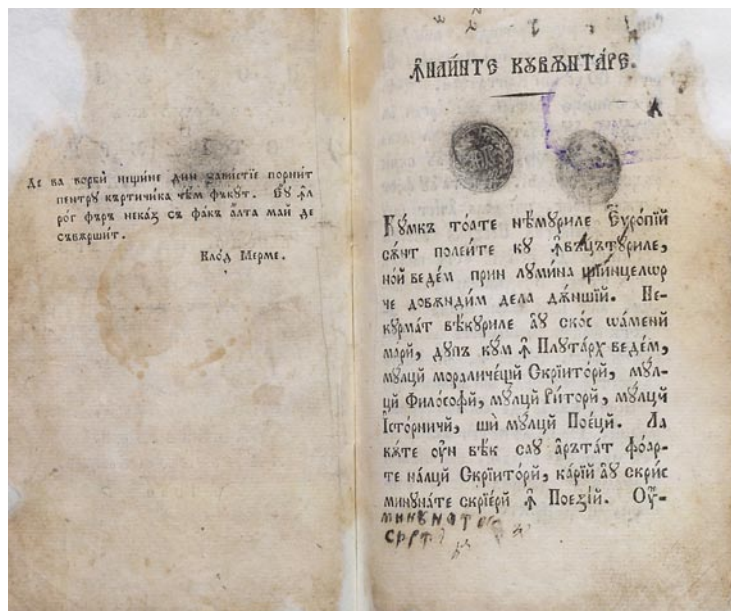 Де ва ворбѝ нещине дин завистїе порнит
пентру кꙋртичика че́м фъкꙋ́т. Еꙋ́ ꙟ҆л
рог фъръ некаꙁ съ факъ а҆лта май де
съвѫршит.
Клод Мерме.
Ꙟ҆наи́нте кꙋвѫнта́ре.
Кꙋ́мкъ то́ате нѣ́мꙋриле Еѵро́пїй
сѫ́нт полеи́те кꙋ ꙟ҆въцътꙋ́риле,
но́й веде́м прин лꙋми́на щїи́нцелѡр
че довѫнди́м дела дѫ́ншїй. Не-
кꙋрма́т вѣ́кꙋриле а҆ꙋ ско́с ѡ҆́амени
ма́рй, дꙋпъ кꙋ́м ꙟ҆ Плꙋта́рх веде́м,
мꙋ́лцй мораличе́щй Скрїито́рй, мꙋ́л-
цй Фило́софй, мꙋ́лцй Ри́торй, мꙋ́лцй
І҆сто́рничй, шѝ мꙋ́лцй Пое́цй. Ла
кѫ́те оу҆́н вѣ́к саꙋ а҆ръта́т фо́ар-
те на́лцй Скрїито́рй, ка́рїй а҆ꙋ скри́с
минꙋна́те скрїе́рй ꙟ҆ Поеꙁі́й. Оу҆́-
минꙋнате